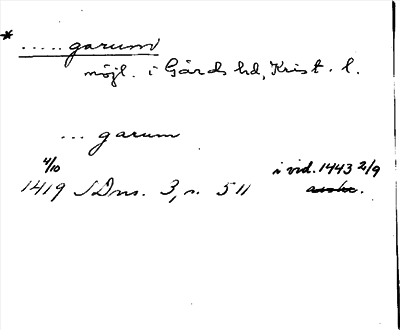 * .....garum
möjl. i Gärds hd, Krist. l.
... garum
4/10 i vid. 1443 2/9
1419 SDns. 3, s. 511